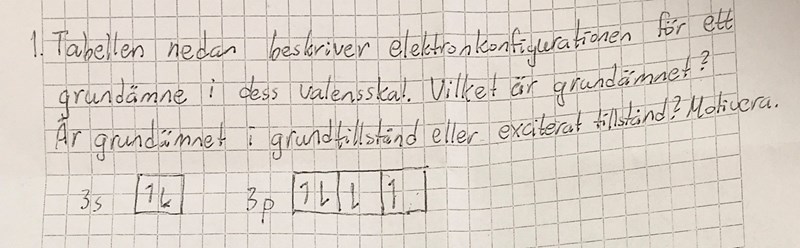 1. Tabellen nedan beskriver elektronkonfigurationen för ett
grundämne i dess valensskal. Vilket är grundämnet?
Är grundämnet i grundtillstånd eller exciterat tillstånd? Motivera.
3s 1L 3p 1L L 1